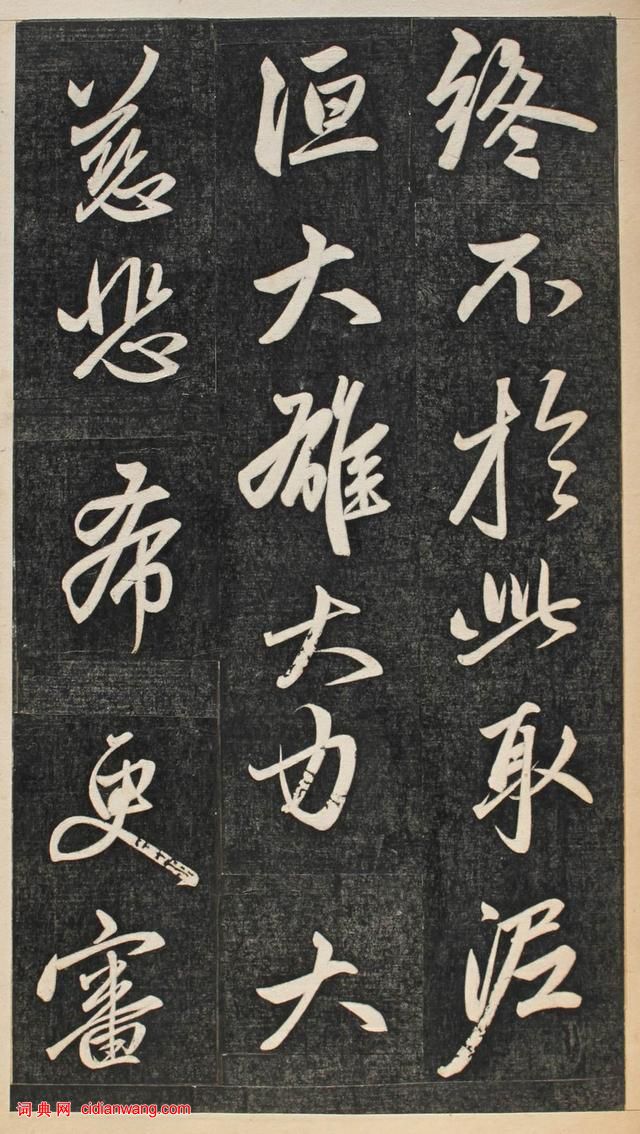 終不於此取泥
洹大雄大力大
慈悲希更審
词典网 cidianwang.com